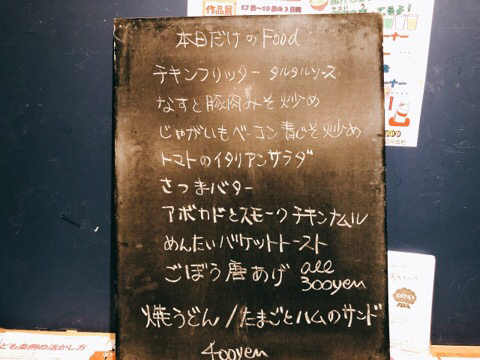 作品展
本日だけのFood
チキンフリッター タルタルソース
なすと豚肉みそ炒め
じゃがいもベーコン青じそ炒め
トマトのイタリアンサラダ
さつまバター
アボカドとスモークチキンナムル
めんたいバケットトースト
ごぼう唐あげ all 300yen
焼うどん/たまごとハムのサンド
400yen
ども条例の活かし方